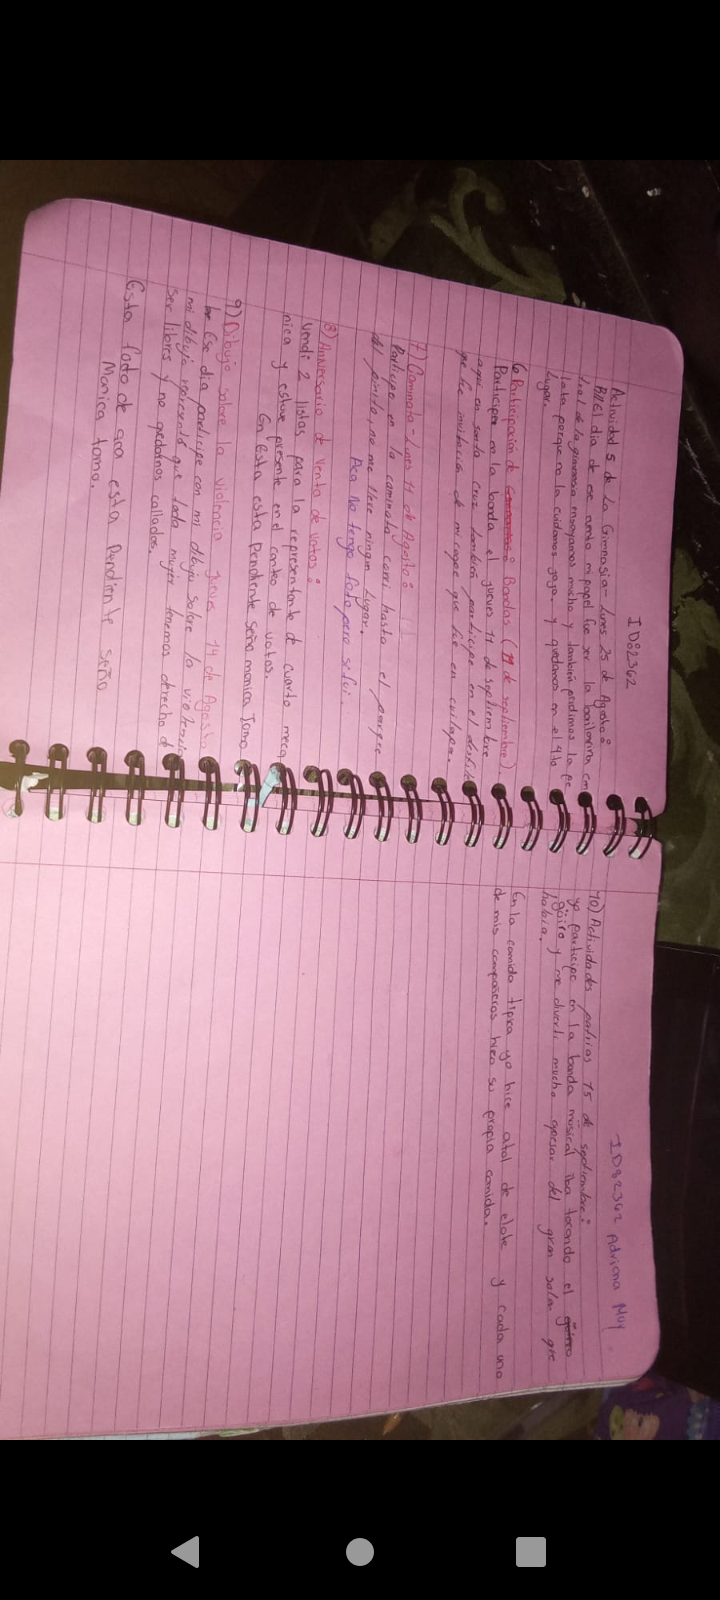 ID82362
Actividad 5 de La Gimnasia - Lunes 25 de Agosto:
El dia de ese evento mi papel fue ser la bailarina
de la gimnasia ensayamos mucho y también perdimos la pe
lota porque no la cuidamos jaja. y quedamos en el 4to
lugar.
6 Participación de Bandas (11 de septiembre).
Participe en la banda el jueves 11 de septiembre
aqui en santa Cruz también participe en el desfile
que fue invitación de mi cole que fue en cuilapa.
7) Caminata - Lunes 11 de Agosto:
Participe en la caminata corri hasta el parque
del pinito, no me lleve ningun Lugar.
Aca No tengo foto pero si fui.
8) Aniversario de venta de votos:
Vendi 2 listas para la representante de cuarto meca
nica y estuve presente en el conteo de votos.
En Esta esta Pendiente Seño monica Tomo
9) Dibujo sobre la violencia jueves 14 de Agosto
Ese dia participe con mi dibujo sobre la violencia
mi dibujo representó que toda mujer tenemos derecho a
ser libres y no quedarnos callados.
Esta foto de aca esta Pendiente seño
Monica tomo.
ID82362 Adriana Muy
10) Actividades patrias 15 de septiembre:
yo participe en la banda músical iba tocando el
güiro y me diverti mucho apesar del gran solon que
habia.
En la comida tipica yo hice atol de elote y cada una
de mis compañeras hizo su propia comida.